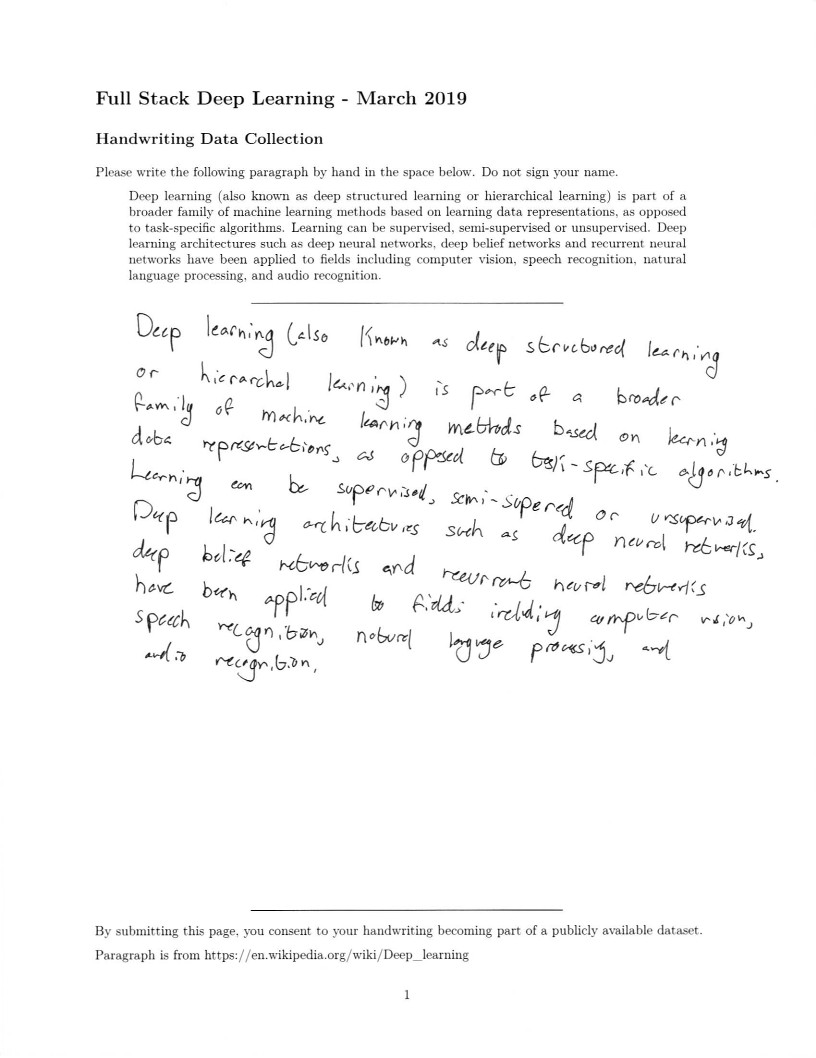 Full Stack Deep Learning - March 2019
Handwriting Data Collection
Please write the following paragraph by hand in the space below. Do not sign your name.
Deep learning (also known as deep structured learning or hierarchical learning) is part of a
broader family of machine learning methods based on learning data representations, as opposed
to task-specific algorithms. Learning can be supervised, semi-supervised or unsupervised. Deep
learning architectures such as deep neural networks, deep belief networks and recurrent neural
networks have been applied to fields including computer vision, speech recognition, natural
language processing, and audio recognition.
Deep learning (also Known as deep structured learning
or hierarchal learning) is part of a broader
family of machine learning methods based on learning
data representations, as opposed to task-specific algorithms.
Learning can be supervised, semi-supered or unsupervised.
Deep learning architectures such as deep neural networks,
deep belief networks and recurrent neural networks
have been applied to fields including computer vision,
speech recognition, natural language processing, and
audio recognition,
By submitting this page, you consent to your handwriting becoming part of a publicly available dataset.
Paragraph is from https://en.wikipedia.org/wiki/Deep_learning
1